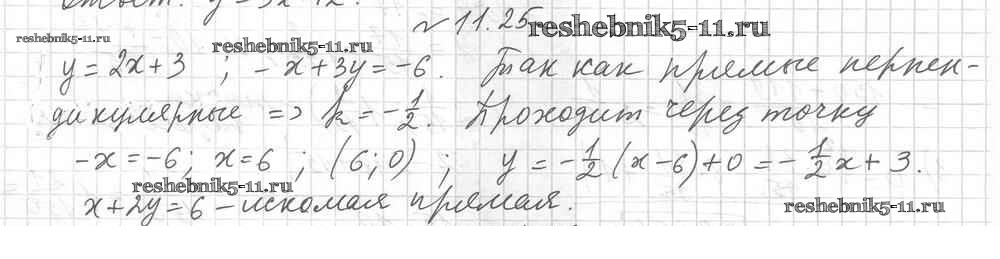 Ответ: y = 3x + 12.
№ 11.25 reshebnik5-11.ru
reshebnik5-11.ru reshebnik5-11.ru
y = 2x + 3 ; - x + 3y = -6. Так как прямые перпен-
дикулярные => k = -1/2. Проходит через точку
-x = -6; x = 6 ; (6; 0) ; y = -1/2 (x - 6) + 0 = -1/2 x + 3.
reshebnik5-11.ru
x + 2y = 6 - искомая прямая. reshebnik5-11.ru